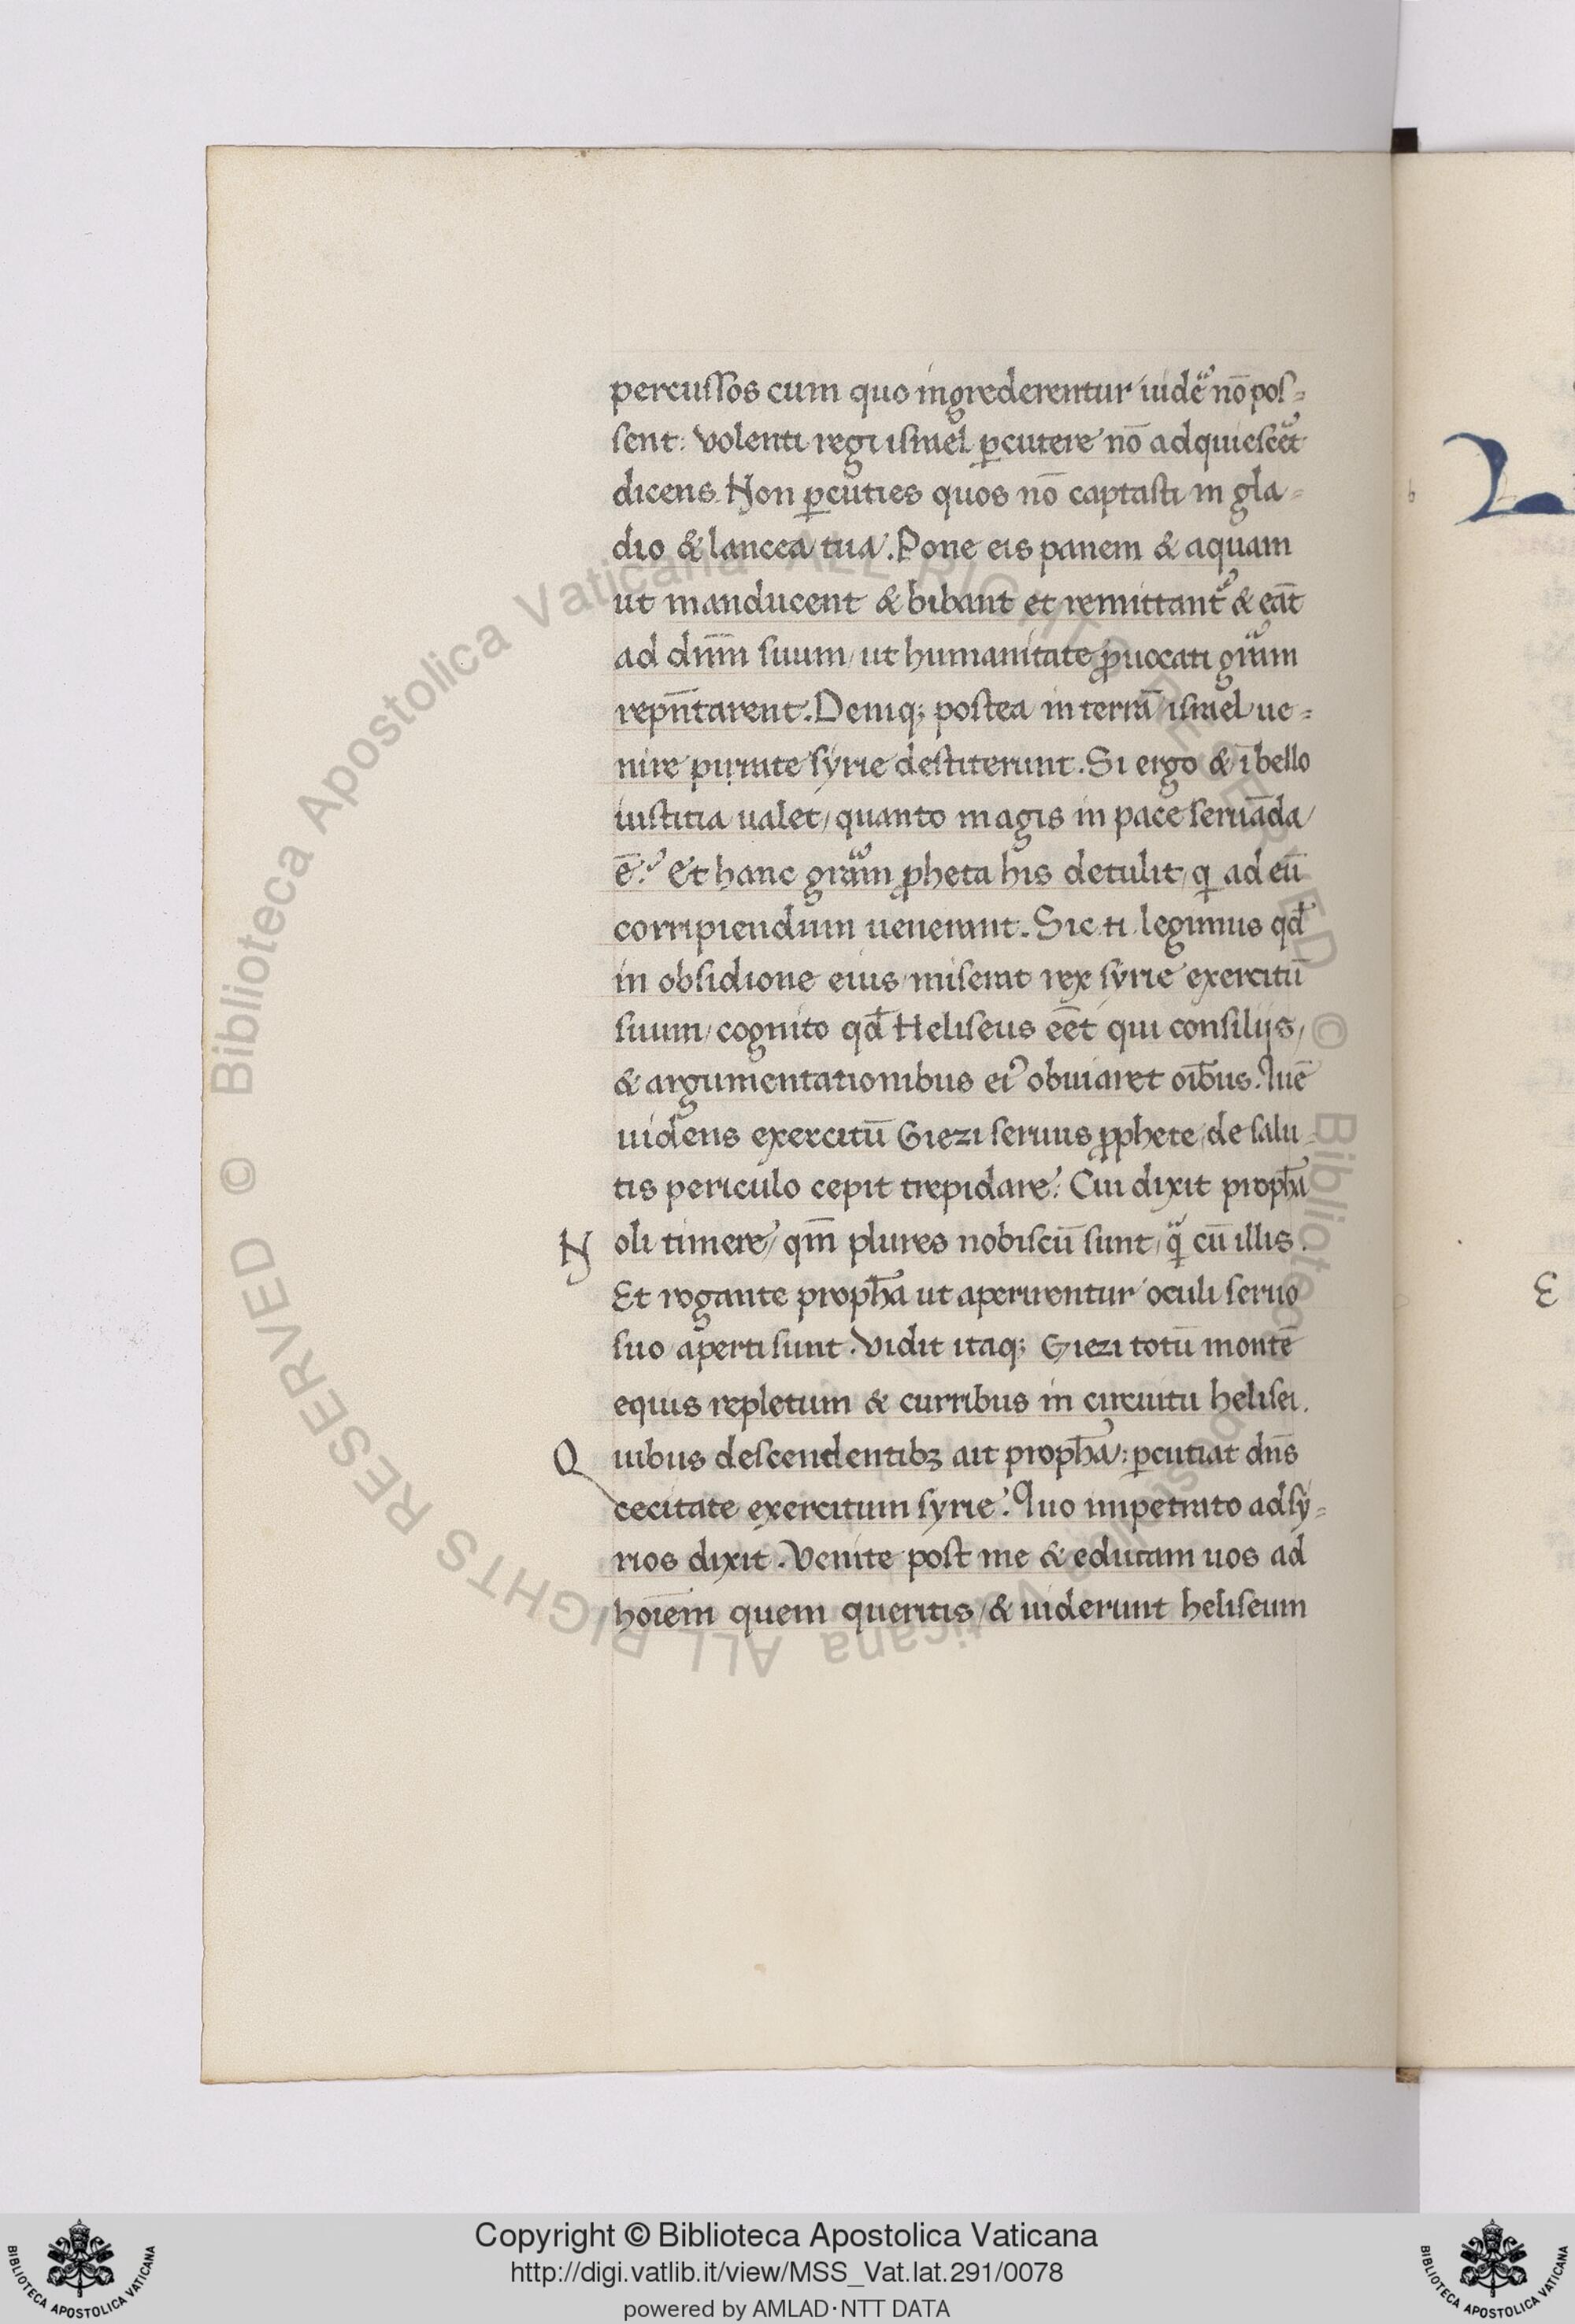 percuſſos cum quo ingrederentur uidē nō poſ-
ſent: Volenti regi iſrael ꝑcutere nō adquieſcēt
dicens. Non ꝑcuties quos nō captaſti in gla-
dio & lancea tua. Pone eis panem & aquam
ut manducent & bibant et remittant̄ & eāt
ad dn̄m ſuum, ut humanitate ꝓuocati gr̄am
repn̄tarent. Deniq; poſtea in terrā iſrael ue-
nire pirrate ſyrie deſtiterunt. Si ergo & ī bello
iuſtitia ualet, quanto magis in pace ſeruāda
ē? Et hanc gr̄am ꝓheta his detulit, q ad eū
corripiendum uenerant. Sic .n. legimus qd̄
in obſidione eius miſerat rex ſyrie exercitū
ſuum, cognito qd̄ Heliſeus eēt qui conſilijs,
& argumentationibus ei' obuiaret oībus. Quē
uidens exercitū Giezi ſeruus ꝓphete, de ſalu-
tis periculo cepit trepidare. Cui dixit proph̄a
Noli timere, qm̄ plures nobiſcū ſunt, q̄ cū illis.
Et rogante proph̄a ut aperirentur oculi ſeruo
ſuo aperti ſunt. Vidit itaq; Giezi totū montē
equis repletum & curribus in circuitu heliſei.
Quibus deſcendentibꝫ ait proph̄a: ꝑcutiat dn̄s
cecitate exercitum ſyrie. Quo impetrato ad ſy-
rios dixit. Venite poſt me & educam uos ad
hoīem quem queritis, & uiderunt heliſeum
L
b
E
Copyright © Biblioteca Apostolica Vaticana
http://digi.vatlib.it/view/MSS_Vat.lat.291/0078
powered by AMLAD·NTT DATA
BIBLIOTECA APOSTOLICA VATICANA
BIBLIOTECA APOSTOLICA VATICANA
© Biblioteca Apostolica Vaticana ALL RIGHTS RESERVED © Biblioteca Apostolica Vaticana ALL RIGHTS RESERVED